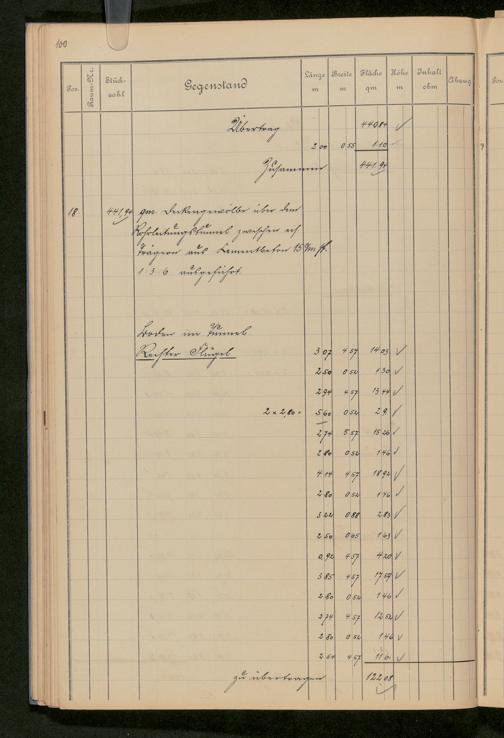 100
Pos. Raum-Nr. Stückzahl Gegenstand Länge m Breite m Fläche qm Höhe m Inhalt cbm Abzug
Übertrag 440.84
2.00 0.55 1.10
Zusammen 441.94
18. 441,94 qm Deckengewölbe über dem
Rohrleitungstunnel zwischen
Trägern aus Cementbeton 15
1:3:6 ausgeführt.
Boden im Tunnel
Rechter Flügel 3.07 4.57 14.03
2.50 0.52 1.30
2.94 4.57 13.44
2 x 2,80 = 5.60 0.52 2.91
2.74 5.57 15.26
2.80 0.52 1.46
4.14 4.57 18.92
2.80 0.52 1.46
3.22 0.88 2.83
2.50 0.65 1.63
0.92 4.57 4.20
3.85 4.57 17.59
2.80 0.52 1.46
2.74 4.57 12.52
2.80 0.52 1.46
4.57
zu übertragen 122.08